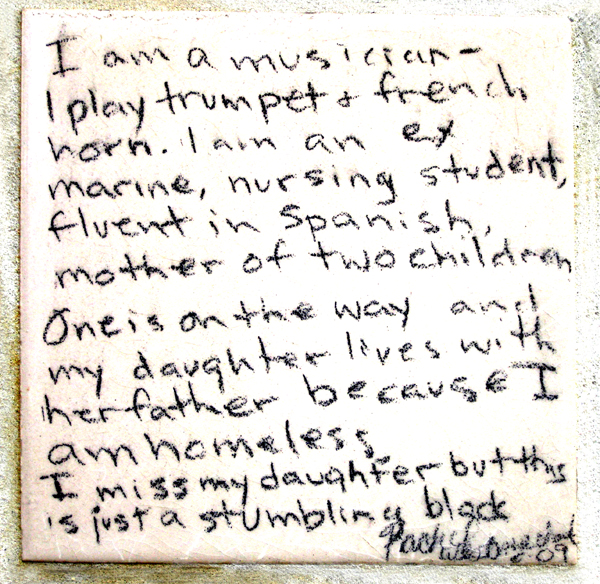 I am a musician-
I play trumpet & french
horn. I am an ex
marine, nursing student,
fluent in Spanish,
mother of two children
One is on the way and
my daughter lives with
her father because I
am homeless.
I miss my daughter but this
is just a stumbling block
09